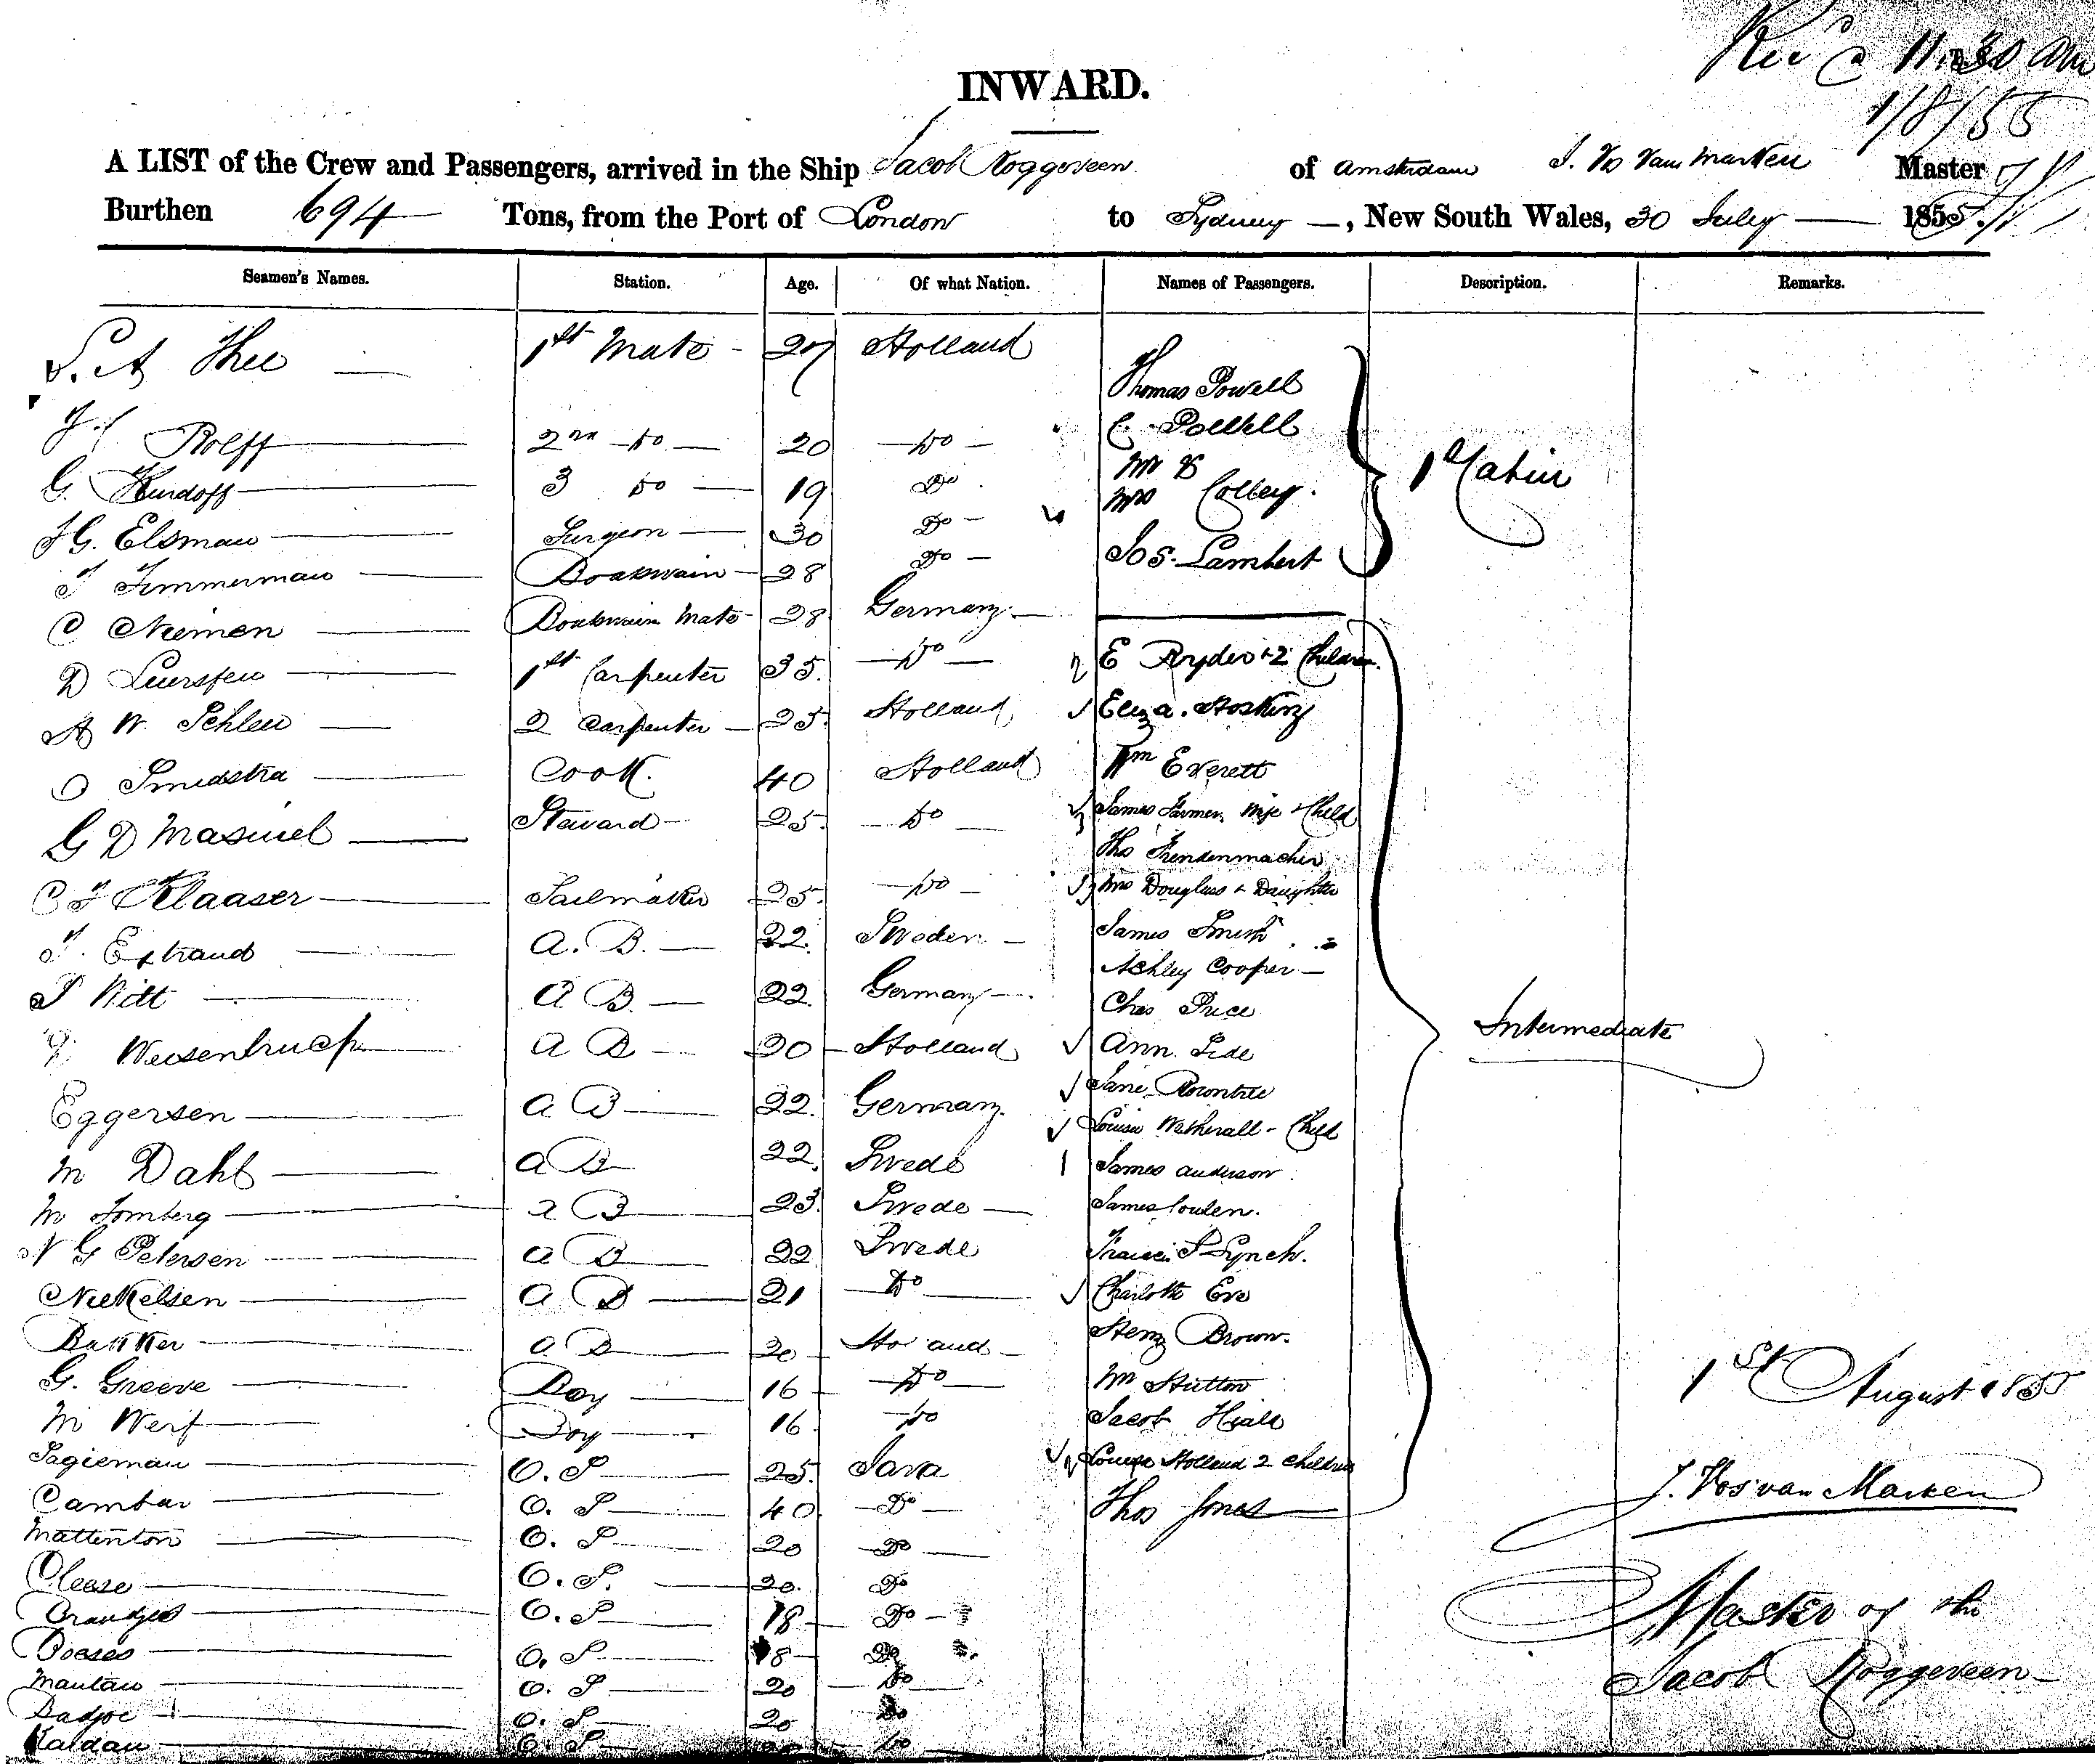 Rec'd 11.30 am
1/8/55
INWARD.
A LIST of the Crew and Passengers, arrived in the Ship Jacob Roggeveen of Amsterdam J. Vos van Marken Master
Burthen 694 Tons, from the Port of London to Sydney, New South Wales, 30 July 1855.
Seamen's Names. Station. Age. Of what Nation. Names of Passengers. Description. Remarks.
1st Mate 27 Holland
Thomas Powell
Rolff 2nd Do 20 Do
C. Powell
G. 3 Do 19 Do
Mr &
Mrs Colley.
1st Cabin
J G. Elsman Surgeon 30 Do
J Timmerman Boatswain 28 Do
Jos. Lambert
C Niemen Boatswain Mate 28 Germany
D Luersfen 1st Carpenter 35. Do
E Ryder + 2 Children.
A W. Schleu 2 Carpenter 25. Holland
Eliza. Hosking
O Smidstra Cook. 40 Holland
Wm Everett
G D Steward 25. Do
James Farmer, Wife + Child
Thos
C J Klaaser Sailmaker 25. Do
Mrs Douglass + Daughter
J. Extrand A. B. 22. Sweden
James Smith
Ashley Cooper
J Witt A B. 22. Germany
Chas Price
Intermediate
Weisenbruch A B 20 Holland
Ann. Side
Jane Rowntree
Eggersen A B 22. Germany.
Louisa Wetherall - Child
M Dahl A B 22. Swede
James Anderson
M Tomberg A B 23. Swede
James Coulen.
N G Petersen A B 22 Swede
Francis P Lynch.
Niekelsen A B 21 Do
Charlotte Eve
Bakker A B 20 Holland
Henry Brown.
G. Greeve Boy 16 Do
Wm Hutton
1st August 1855
M Werf Boy 16 Do
Jacob
Sagieman O. S 25. Java
Louisa Holland 2 Children
J. Vos van Marken
Cambar O. S 40 Do
Thos Jones
Mattenton O. S 20 Do
Clease O. S. 20. Do
O. S 18 Do
Master of the
O. S 18 Do
Mantau O. S 20 Do
Jacob Roggeveen
Badjoe O. S 20 Do
Kaldau O. S 20 Do